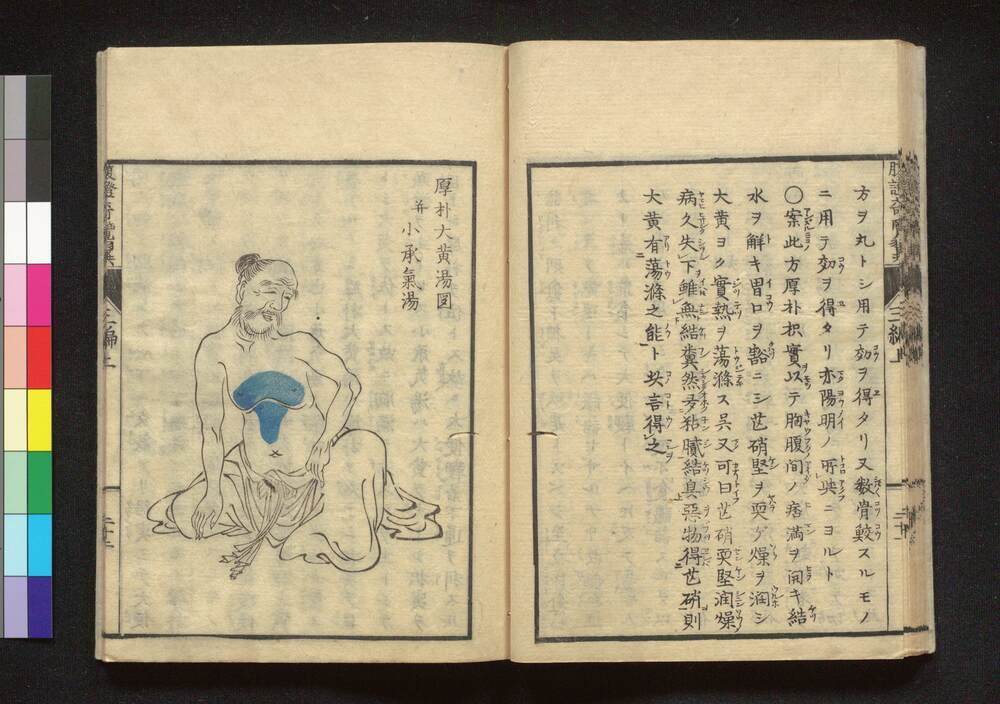 方ヲ丸トシ用テ効ヲ得タリ又数骨鯁スルモノ
ニ用テ効ヲ得タリ亦陽明ノ所兴ニヨルト
〇案此方厚朴枳實以テ胸腹間ノ痞満ヲ開キ結
水ヲ解キ胃口ヲ豁ニシ芒硝堅ヲ耎ゲ燥ヲ潤シ
大黄ヨク實熱ヲ蕩滌ス呉又可曰芒硝耎堅潤燥
病久失下雖無結糞然多粘膩結臭惡物得芒硝則
大黄有蕩滌之能ト此言得之
厚朴大黄湯図
并小承氣湯
腹證奇覧翼
三編上